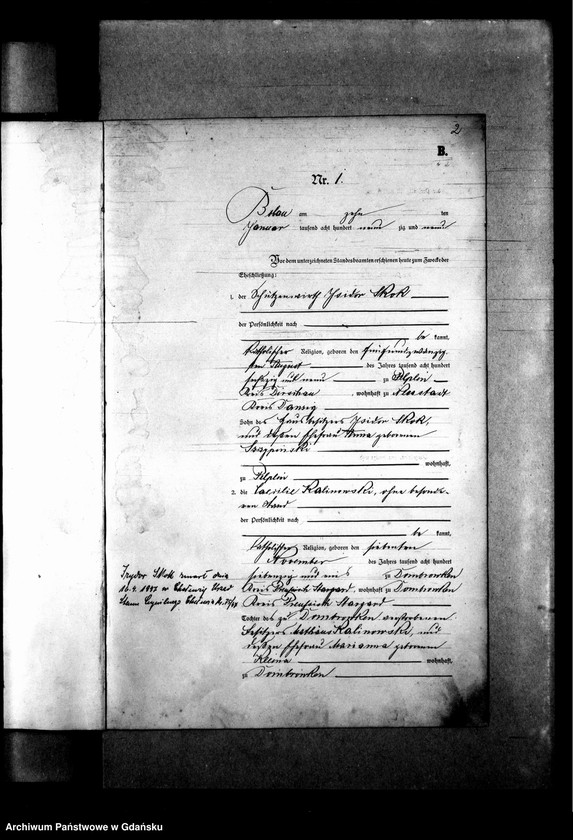 2
B.
Nr. 1.
am zehn ten
Januar tausend acht hundert neunzig und neun
Vor dem unterzeichneten Standesbeamten erschienen heute zum Zwecke der
Eheschließung:
1. der Isidor Skok
der Persönlichkeit nach
be kannt,
katholischer Religion, geboren den fünfundzwanzig-
sten August des Jahres tausend acht hundert
sechszig und neun zu Pelplin
Kreis Dirschau, wohnhaft zu
Kreis Danzig
Sohn des Hausbesitzers Isidor Skok,
und dessen Ehefrau Anna geborenen
wohnhaft,
zu Pelplin
2. die Caecilie Kalinowski, ohne besonde-
ren Stand
der Persönlichkeit nach
be kannt,
katholischer Religion, geboren den siebenten
November des Jahres tausend acht hundert
siebenzig und zu Dombrowken
Kreis Preußisch Stargard, wohnhaft zu Dombrowken
Kreis Preußisch Stargard
Tochter des zu Dombrowken verstorbenen
Besitzers Mathias Kalinowski, und
dessen Ehefrau Marianna geborenen
wohnhaft,
zu Dombrowken
Skok zmarł dnia
Archiwum Państwowe w Gdańsku